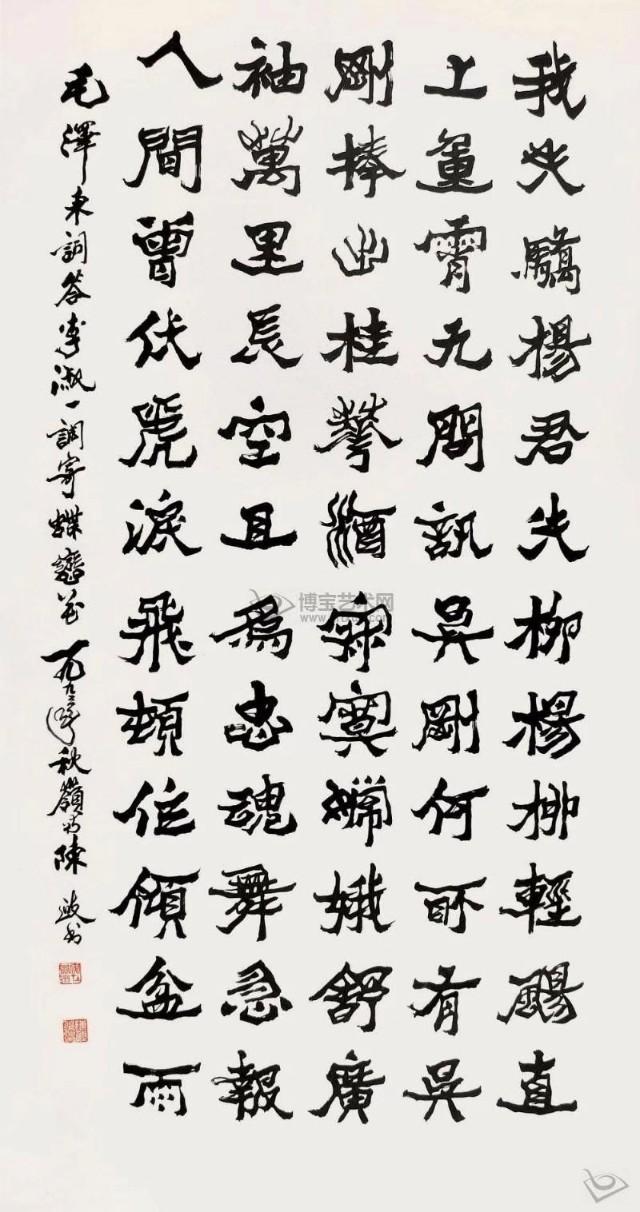 我失驕楊君失柳楊柳輕颺直
上重霄九問訊吳剛何所有吳
剛捧出桂華酒寂寞嫦娥舒廣
袖萬里長空且為忠魂舞急報
人間曾伏虎淚飛頓作傾盆雨
毛澤東詞答李淑一調寄蝶戀花一九九年秋嶺南陳波書
博宝艺术网